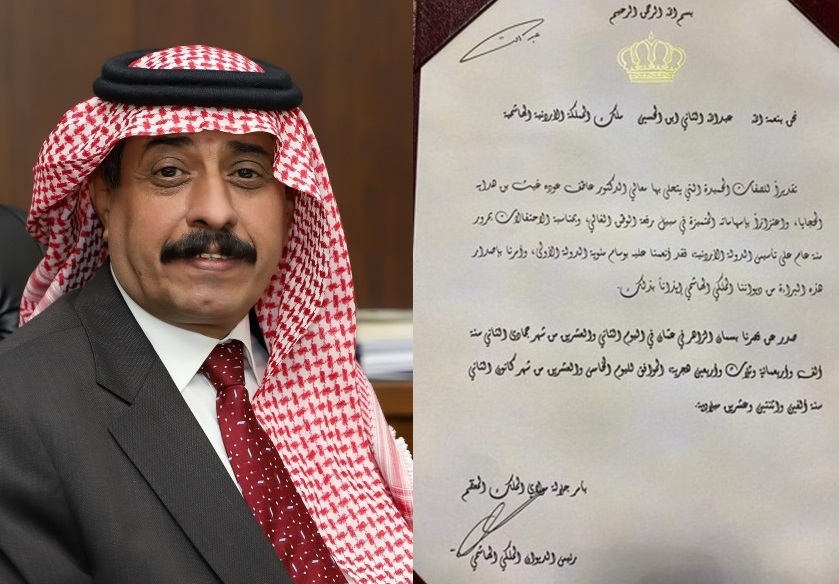 بسم الله الرحمن الرحيم
عبد الله
نحن بنعمة الله عبدالله الثاني ابن الحسين ملك المملكة الاردنية الهاشمية
تقديراً للصفات الحميدة التي يتحلى بها معالي الدكتور عاطف عوده غيث بن هدايه
الحجايا، واعتزازاً بإسهاماته المتميزة في سبيل رفعة الوطن الغالي، وبمناسبة الاحتفالات بمرور
مئة عام على تأسيس الدولة الاردنية فقد أنعمنا عليه بوسام مئوية الدولة الاولى، وأمرنا بإصدار
هذه البراءة من ديواننا الملكي الهاشمي إيذاناً بذلك.
صدر عن قصرنا بسمان الزاهر في عمّان في اليوم الثاني والعشرين من شهر جمادى الثاني سنة
ألف واربعمائة وثلاث واربعين هجرية الموافق لليوم الخامس والعشرين من شهر كانون الثاني
سنة ألفين واثنتين وعشرين ميلادية.
بأمر جلالة مولاي الملك المعظم
رئيس الديوان الملكي الهاشمي